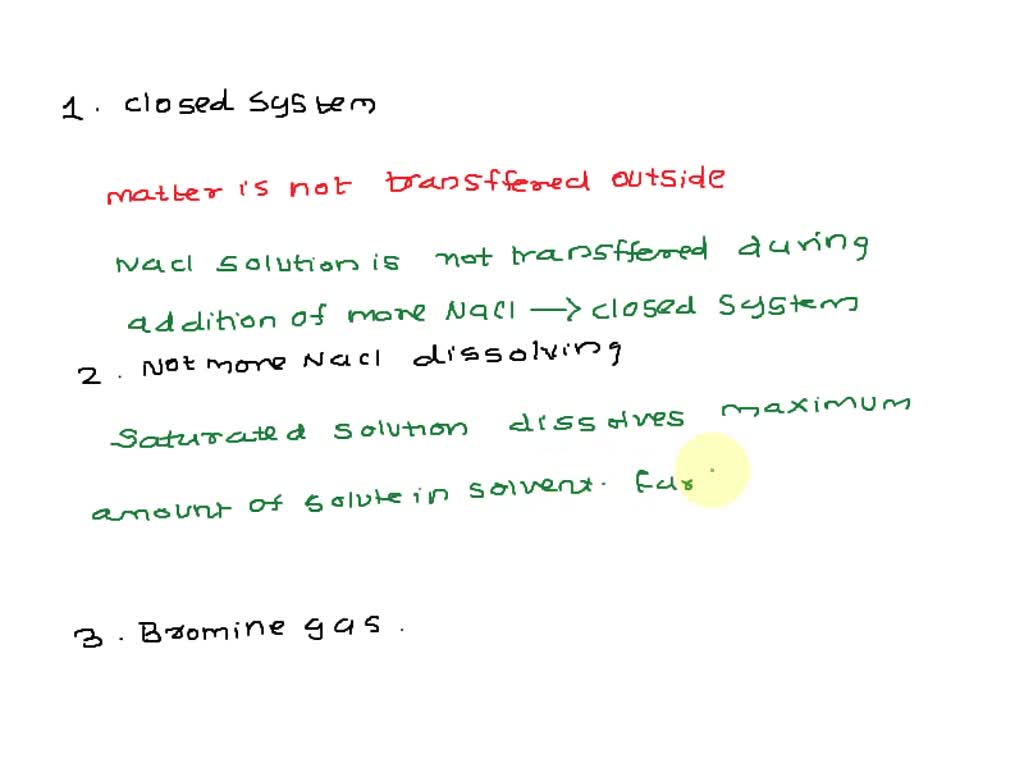 1. closed system
matter is not transffered outside
Nacl solution is not transffered during
addition of more NaCl → closed system
2. Not more Nacl dissolving
Saturated solution dissolves maximum
amount of solute in solvent. Fur
3. Bromine gas.